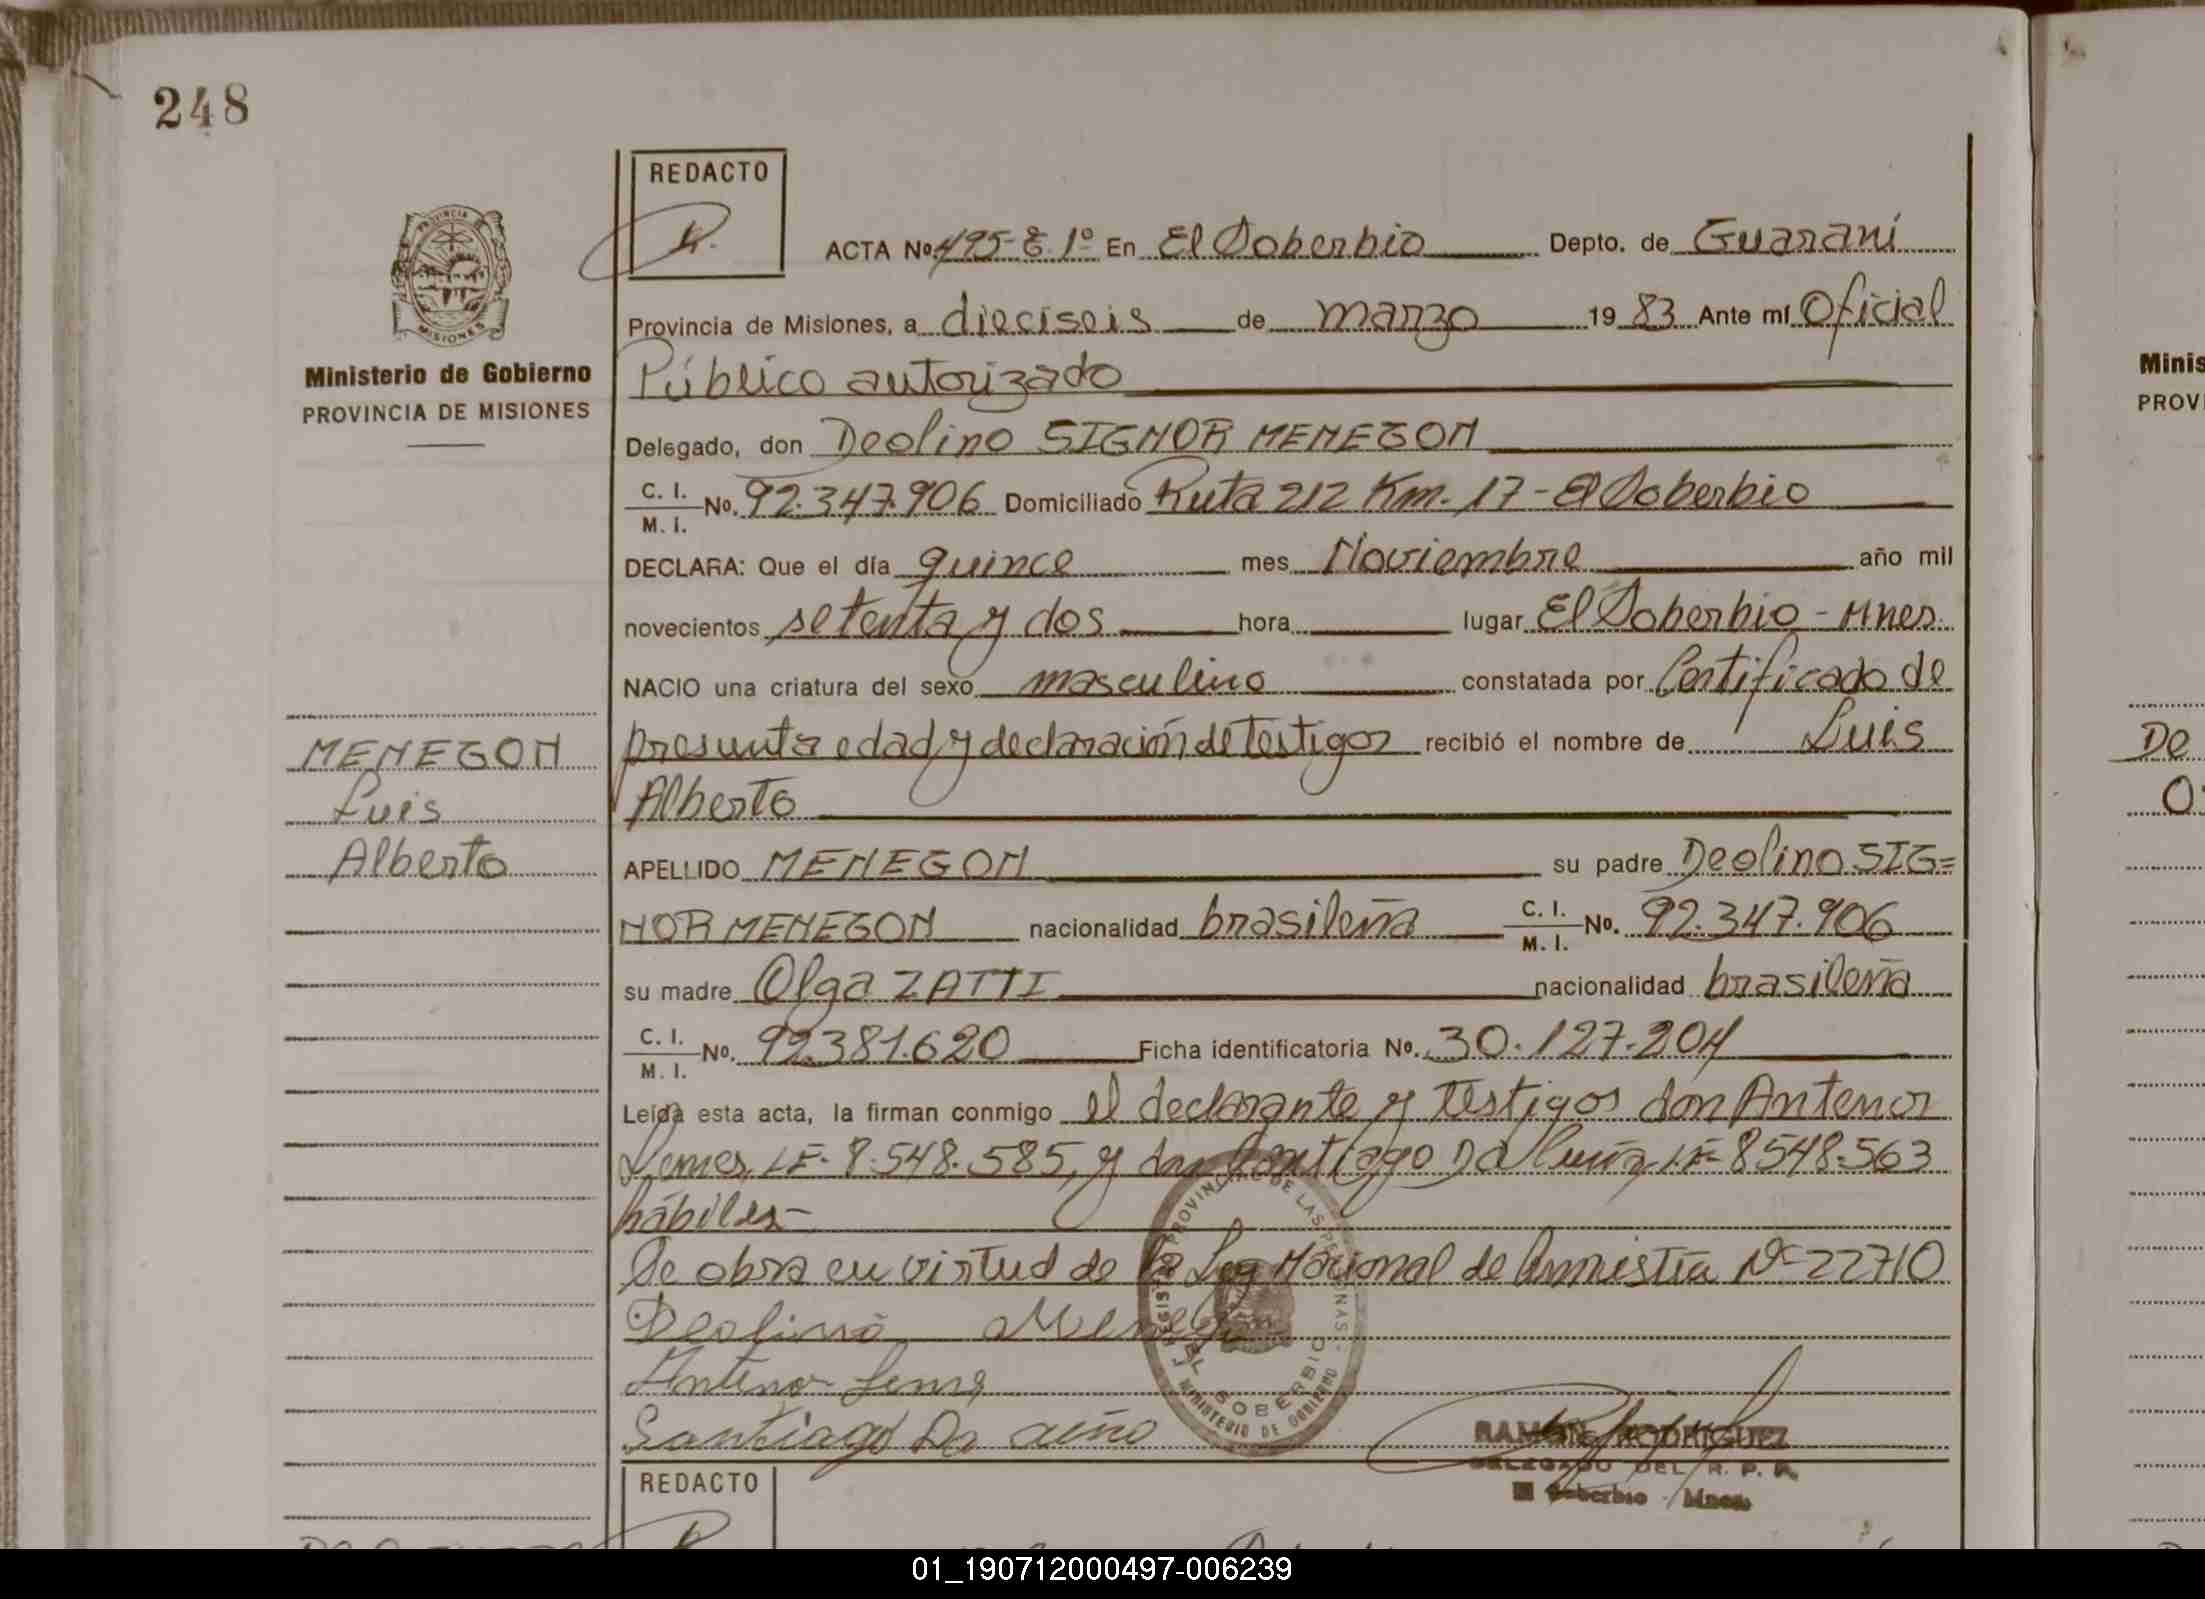 248
REDACTO
ACTA No. 495-E. 1º En El Soberbio Depto. de Guaraní
Provincia de Misiones, a dieciseis de marzo 19 83 Ante mí Oficial
Público autorizado
Delegado, don Deolino SIGNOR MENEGON
C. I. M. I. No. 92.347.906 Domiciliado Ruta 212 Km. 17 - El Soberbio
DECLARA: Que el día quince mes Noviembre año mil
novecientos setenta y dos hora lugar El Soberbio - Mnes.
NACIO una criatura del sexo masculino constatada por Certificado de
presunta edad y declaración de testigos recibió el nombre de Luis
Alberto
APELLIDO MENEGON su padre Deolino SIG=
NOR MENEGON nacionalidad brasileña C. I. M. I. No. 92.347.906
su madre Olga ZATTI nacionalidad brasileña
C. I. M. I. No. 92.381.620 Ficha identificatoria No. 30.127.204
Leída esta acta, la firman conmigo el declarante y testigos don Antenor
Lemes, LE. 8.548.585, y don Santiago Da LE 8548.563
hábiles-
Se obra en virtud de la Ley Nacional de Amnistía Nº 22710
Deolino Menegon
Santiago Da
REGISTRO PROVINCIAL DE LAS PERSONAS
EL SOBERBIO
MINISTERIO DE GOBIERNO
RAMON RODRIGUEZ
DELEGADO DEL R. P. P.
El Soberbio - Mnes.
PROVINCIA DE MISIONES
Ministerio de Gobierno
PROVINCIA DE MISIONES
MENEGON
Luis
Alberto
REDACTO
Minis
PROVI
De
01_190712000497-006239